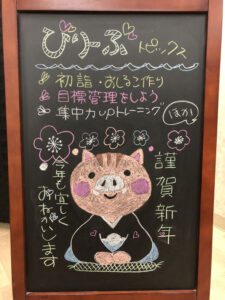 びりーぶ トピックス
初詣・おしるこ作り
目標管理をしよう
集中力UPトレーニング
ほか
謹賀新年
今年も宜しく
おねがいします